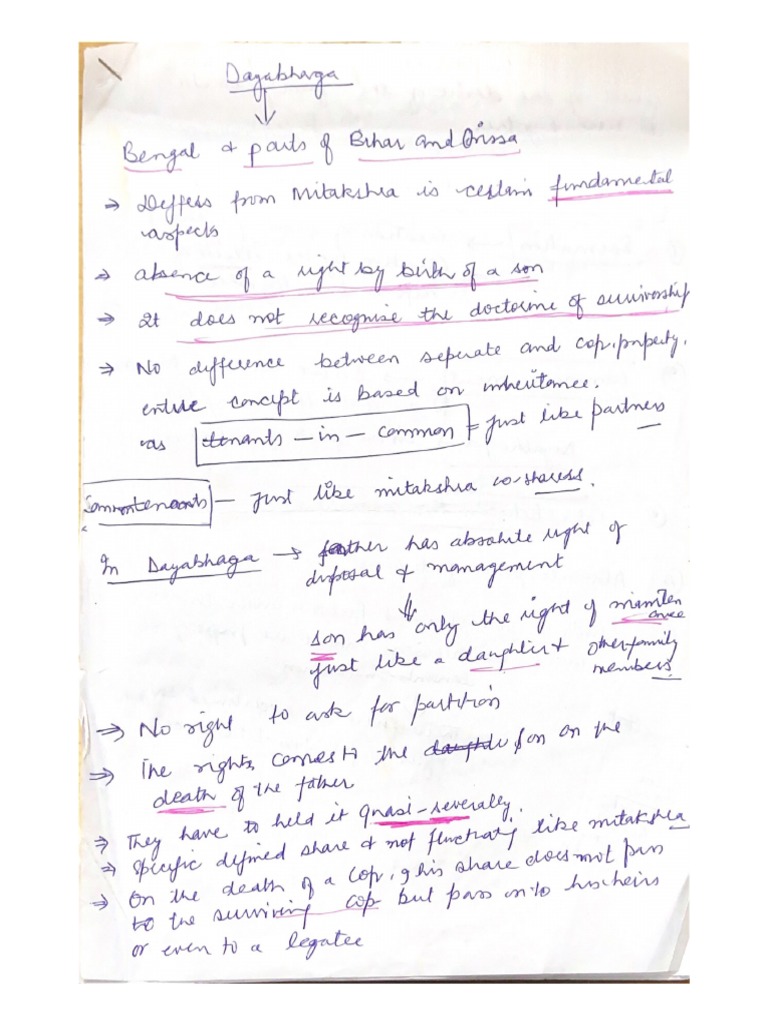 Dayabhaga
↓
Bengal & parts of Bihar and Orissa
⇒ Deffers from Mitakshra is certain fundamental
aspects
⇒ absence of a right by birth of a son
⇒ It does not recognise the doctorine of survivorship
⇒ No difference between seperate and cop. property.
entire concept is based on inheritance.
as tenants-in-common = just like partners
- just like mitakshra co-sharess.
In Dayabhaga → father has absolute right of
disposal & management
⇓
son has only the right of mainten
ance
just like a daughter & other family
members.
⇒ No right to ask for partition
⇒ The rights comes to the son on the
death of the father
⇒ They have to held it quasi-severally.
⇒ Specific defined share & not fluctuatig like mitakshra
⇒ On the death of a cop, his share does not pass
to the surviving cop but pass onto his heirs
or even to a legatee